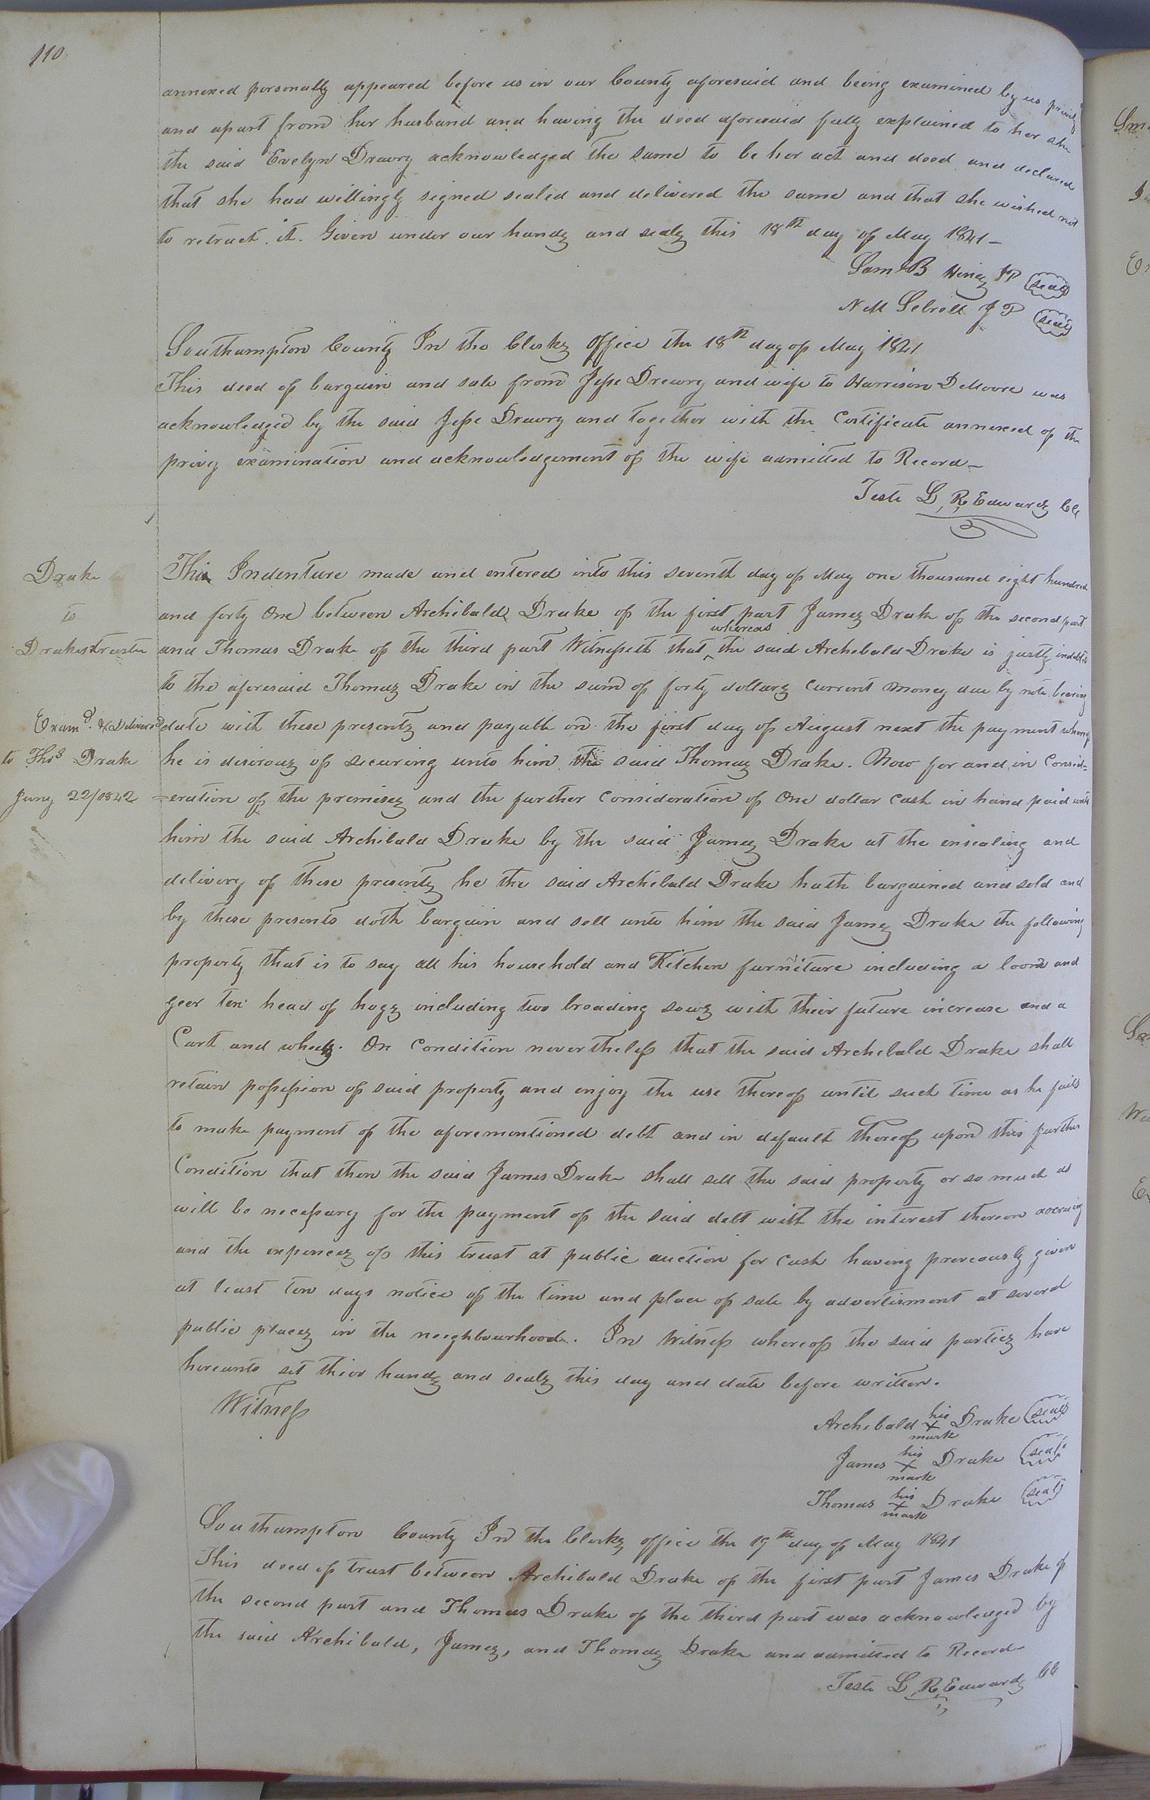 110
annexed personally appeared before us in our County aforesaid and being examined by us privily
and apart from her husband and having the deed aforesaid fully explained to her she
the said Evelyn Drewry acknowledged the same to be her act and deed and declared
that she had willingly signed sealed and delivered the same and that she wished not
to retract it. Given under our hands and seals this 18th day of May 1841 –
Saml B Hines JP (seal)
N M Sebrell J P (seal)
Southampton County In the Clerks Office the 18th day of May 1841
This deed of bargain and sale from Jesse Drewry and wife to Harrison D Moore was
acknowledged by the said Jesse Drewry and together with the Certificate annexed of the
privy examination and acknowledgement of the wife admitted to Record –
Teste L, R, Edwards Clk
Drake
to
Drakes trustee
Examd. & Delivered
to Thos Drake
Jany 22/1842
This Indenture made and entered into this seventh day of May one thousand eight hundred
and forty One between Archibald Drake of the first part James Drake of the second part
and Thomas Drake of the third part Witnesseth that whereas the said Archibald Drake is justly indebted
to the aforesaid Thomas Drake in the sum of forty dollars current money due by note bearing
date with these presents and payable on the first day of August next the payment whereof
he is desirous of securing unto him the said Thomas Drake. Now for and in Consid=
=eration of the premises and the further consideration of One dollar cash in hand paid unto
him the said Archibald Drake by the said James Drake at the ensealing and
delivery of these presents he the said Archibald Drake hath bargained and sold and
by these presents doth bargain and sell unto him the said James Drake the following
property that is to say all his household and Kitchen furniture including a loom and
geer ten head of hogs including two breading sows with their future increase and a
Cart and wheels. On Condition nevertheless that the said Archibald Drake shall
retain possession of said property and enjoy the use thereof until such time as he fails
to make payment of the aforementioned debt and in default thereof upon this further
Condition that then the said James Drake shall sell the said property or so much as
will be necessary for the payment of the said debt with the interest thereon accruing
and the expences of this trust at public auction for cash having preveously given
at least ten days notice of the time and place of sale by advertisment at several
public places in the neighbourhood. In Witness whereof the said parties have
hereunto set their hands and seals this day and date before written.
Witness
Archibald his X mark Drake (seal)
James his X mark Drake (seal)
Thomas his X mark Drake (seal)
Southampton County In the Clerks office the 19th day of May 1841
This deed of trust between Archibald Drake of the first part James Drake of
the second part and Thomas Drake of the third part was acknowledged by
the said Archibald, James, and Thomas Drake and admitted to Record
Teste L, R, Edwards Clk